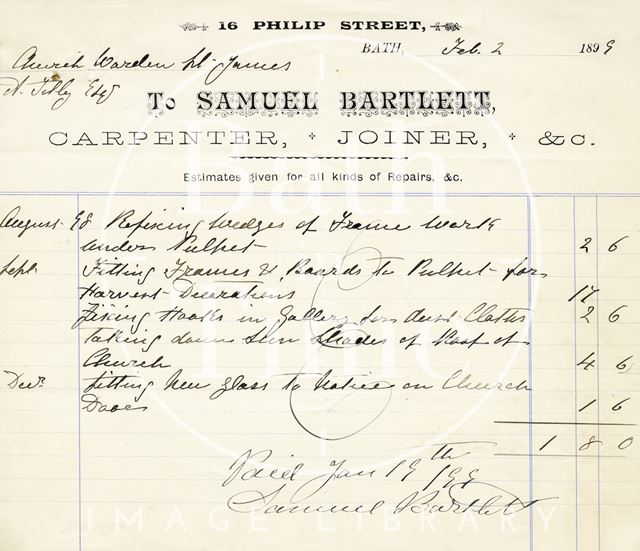 16 PHILIP STREET,
BATH, Feb. 2 1899
Church Warden St. James
A. Tilly Esqr
To SAMUEL BARTLETT,
CARPENTER, JOINER, &C.
Estimates given for all kinds of Repairs, &c.
August 98 Refixing Wedges of Frame Work
under Pulpet 2 6
Sept. Fitting Frames & Boards to Pulpet for
Harvest Decorations 17
Fixing Hooks in Gallery for dust Cloths 2 6
Taking down Sun Shades of Roof of
Church 4 6
Decr. fitting New glass to Notice on Church
Door 1 6
1 8 0
Paid Jan 19th /99
Samuel Bartlett
Bath
in
Time
IMAGE LIBRARY